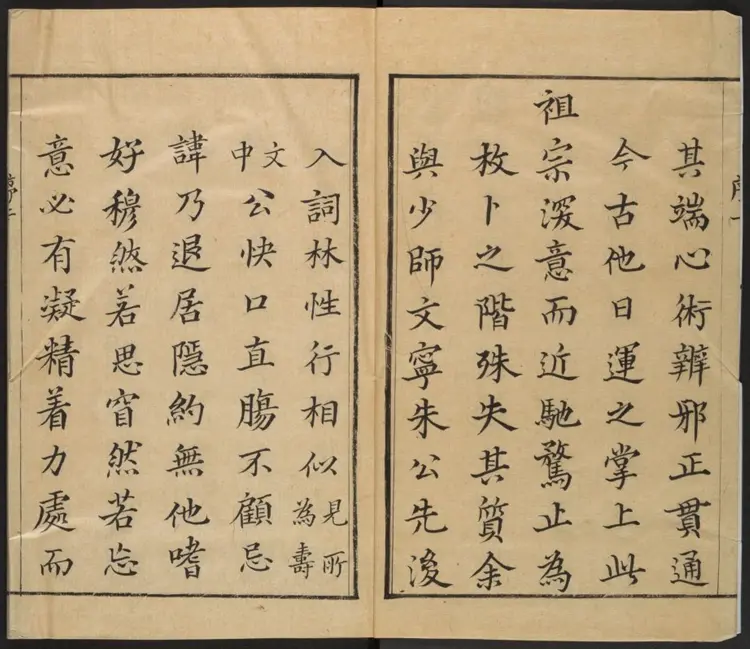 其端心術辨邪正貫通
今古他日運之掌上此
祖宗深意而近馳騖止為
枚卜之階殊失其質余
與少師文寧朱公先後
入詞林性行相似見所為壽
文中公快口直腸不顧忌
諱乃退居隱約無他嗜
好穆然若思窅然若忘
意必有凝精着力處而